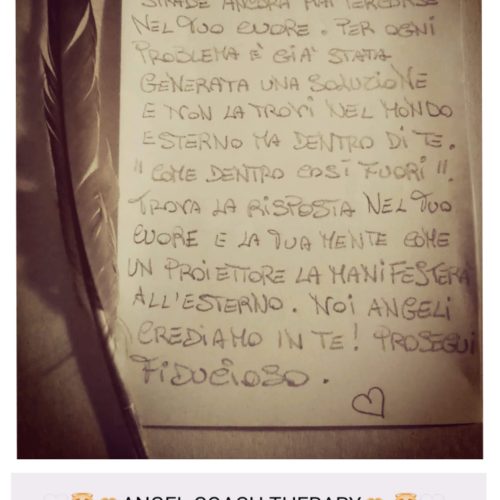 STRADE ANCORA MAI PERCORSE
NEL TUO CUORE. PER OGNI
PROBLEMA È GIÀ STATA
GENERATA UNA SOLUZIONE
E NON LA TROVI NEL MONDO
ESTERNO MA DENTRO DI TE.
"COME DENTRO COSÌ FUORI".
TROVA LA RISPOSTA NEL TUO
CUORE E LA TUA MENTE COME
UN PROIETTORE LA MANIFESTERÀ
ALL'ESTERNO. NOI ANGELI
CREDIAMO IN TE! PROSEGUI
FIDUCIOSO.
ANGEL COACH THERAPY